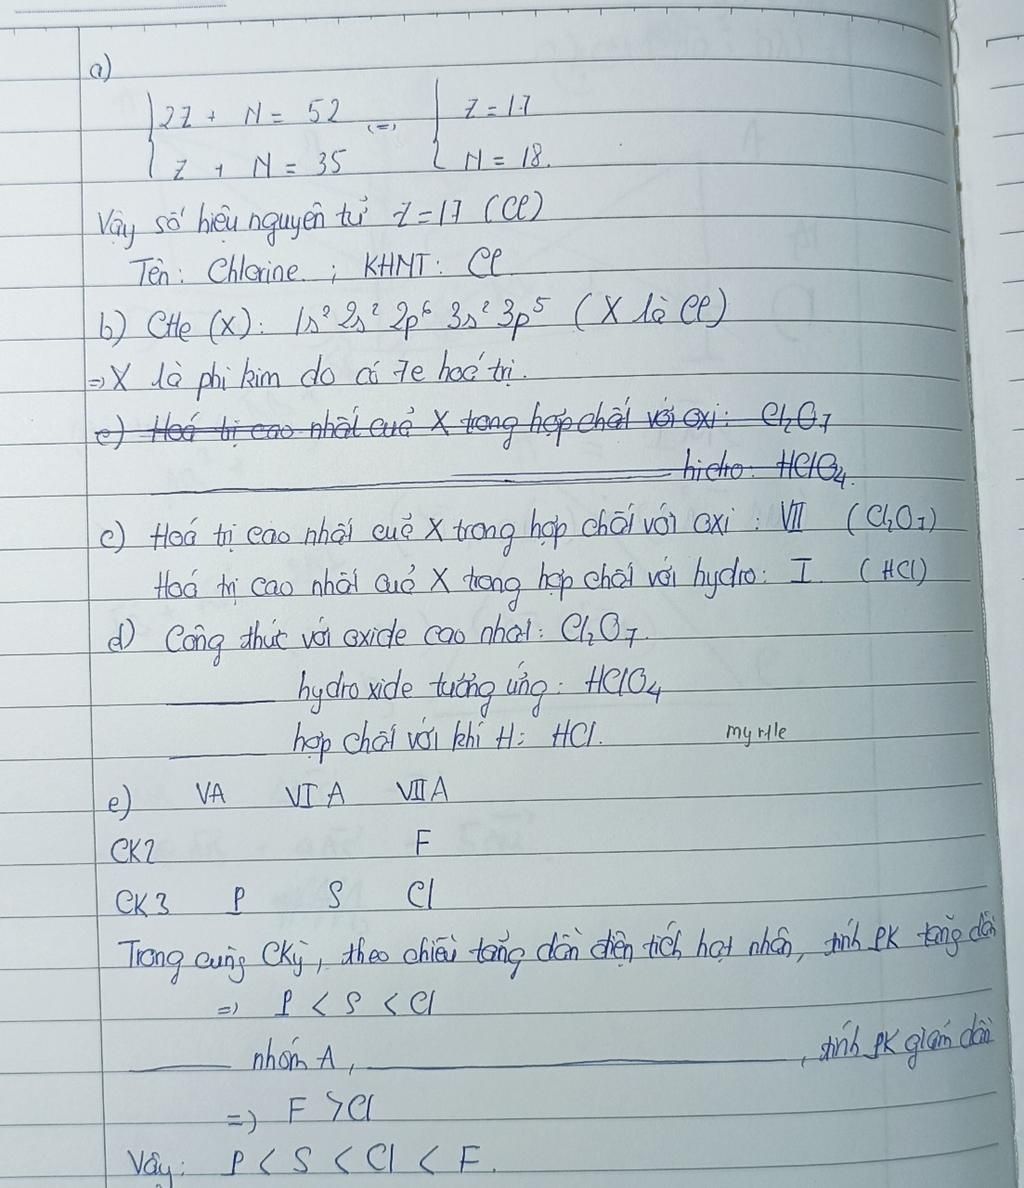 a)
2Z + N = 52 (=) Z = 17
Z + N = 35 N = 18.
Vậy số hiệu nguyên tử Z = 17 (Cl)
Tên: Chlorine ; KHNT: Cl
b) CHe (X): 1s² 2s² 2p⁶ 3s² 3p⁵ (X là Cl)
=> X là phi kim do có 7e hoá trị.
c) Hoá trị cao nhất cuả X trong hợp chất với oxi: Cl₂O₇
hidro: HClO₄.
c) Hoá trị cao nhất cuả X trong hợp chất với oxi : VII (Cl₂O₇)
Hoá trị cao nhất cuả X trong hợp chất với hydro: I (HCl)
d) Công thức với oxide cao nhất: Cl₂O₇.
hydroxide tương ứng: HClO₄
hợp chất với khí H: HCl. myrtle
e) VA VI A VII A
CK2 F
CK3 P S Cl
Trong cùng CKỳ, theo chiều tăng dần điện tích hạt nhân, tính PK tăng dần
=> P < S < Cl
nhóm A, , tính PK giảm dần
=> F > Cl
Vậy: P < S < Cl < F.